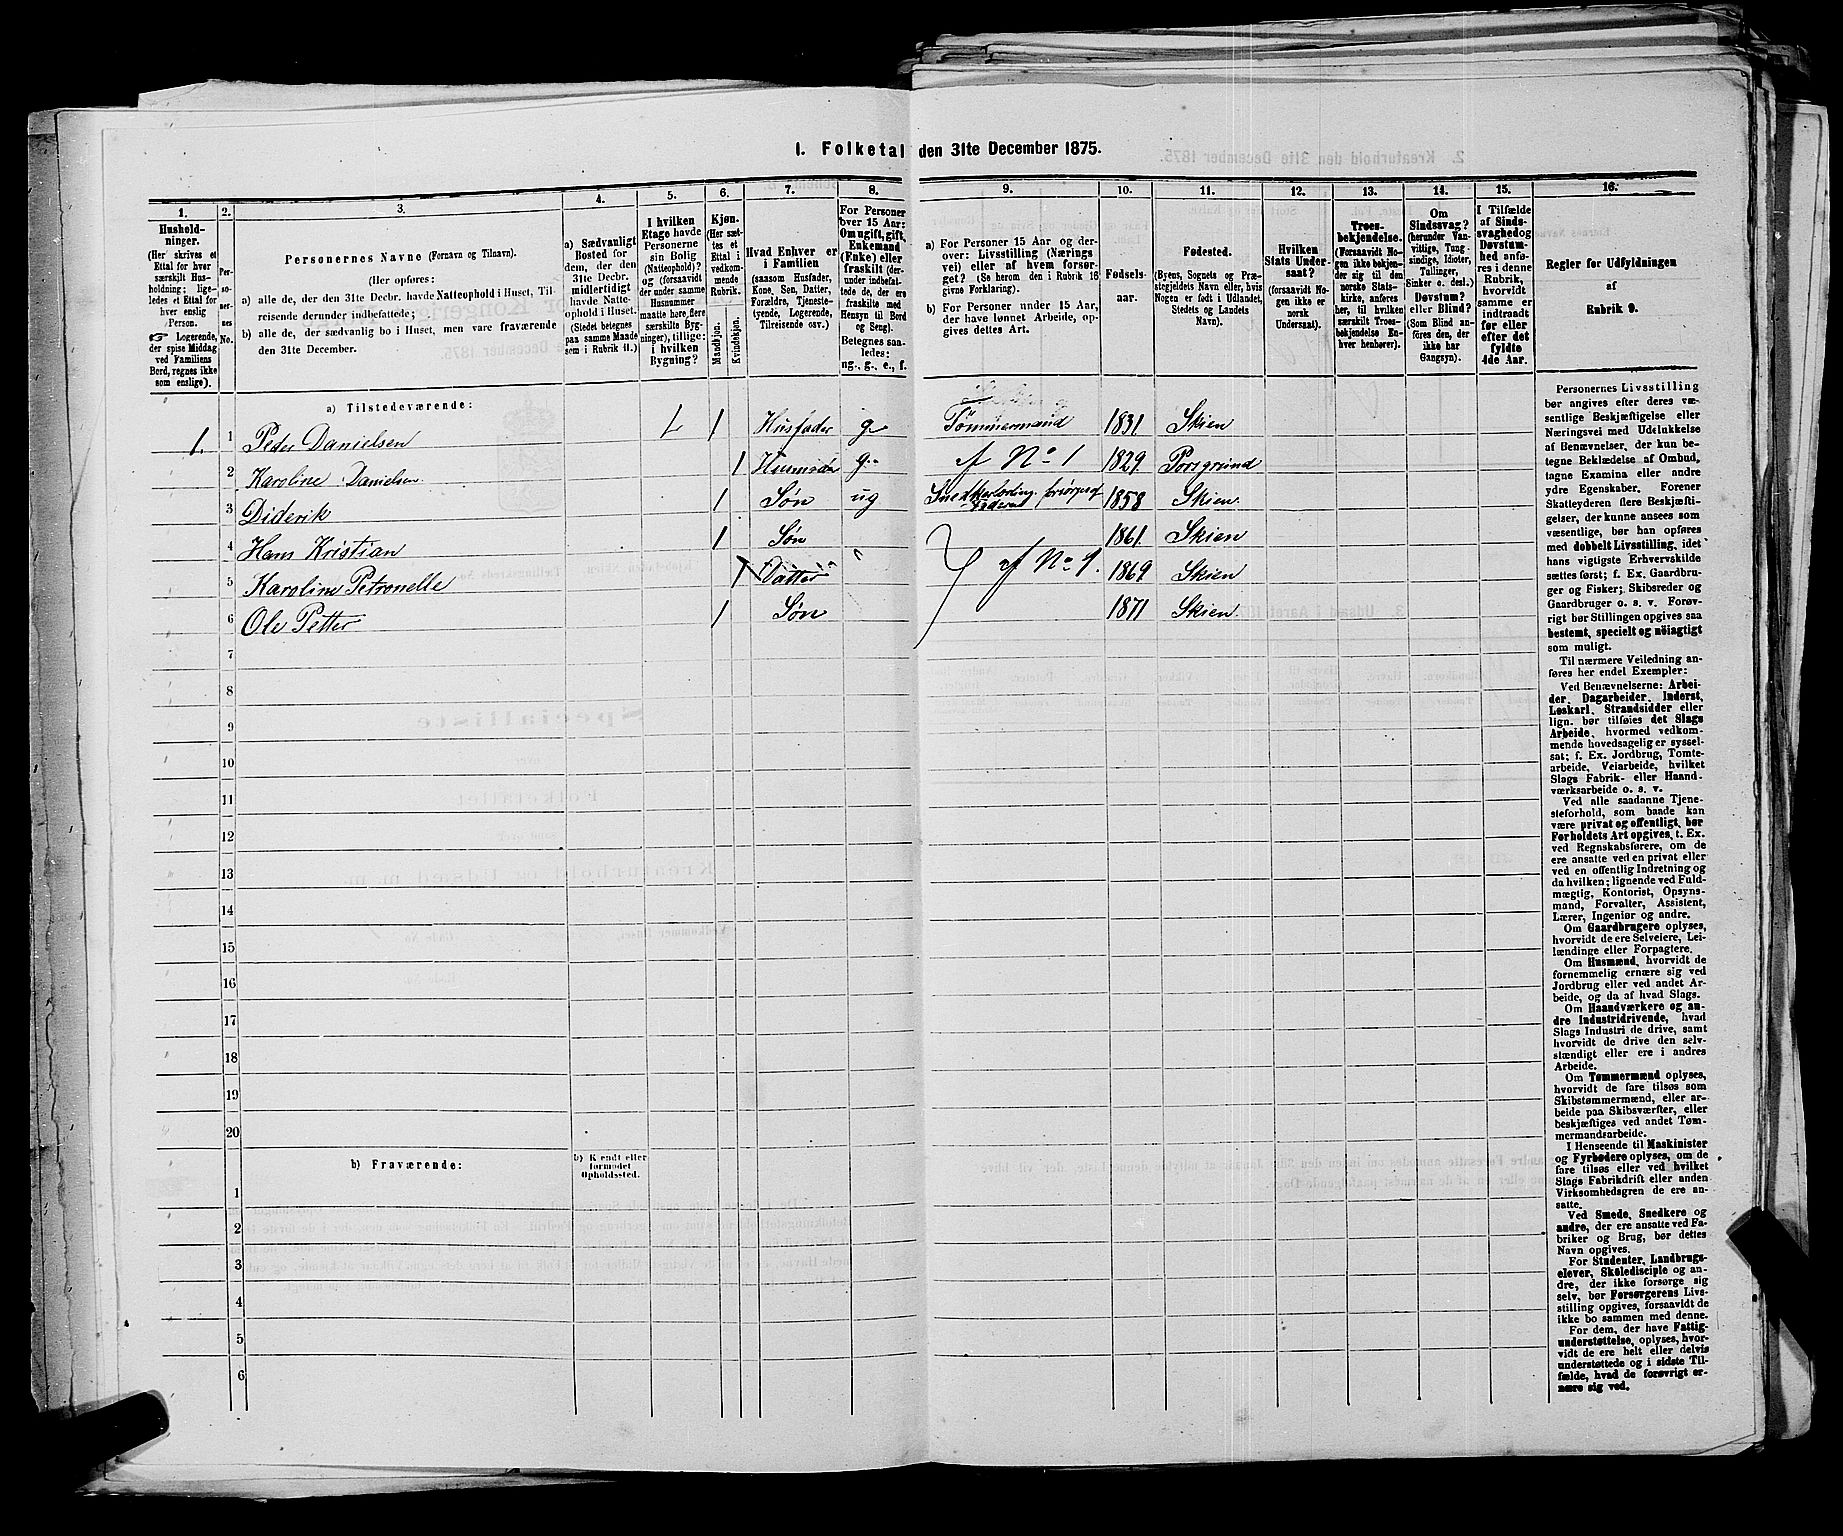 1. Folketal den 31te December 1875.
1. 2. 3. 4. 5. 6. 7. 8. 9. 10. 11. 12. 13. 14. 15. 16.
Hushold-
ninger.
(Her skrives et
Ettal for hver
særskilt Hus-
holdning; lige-
ledes et Ettal for
hver enslig
Person.
☞ Logerende,
der spise Middag
ved Familiens
Bord, regnes ikke
som enslige).
Per-
so-
ner-
nes
No.
Personernes Navne (Fornavn og Tilnavn).
(Her opføres:
a) alle de, der den 31te Decbr. havde Natteophold i Huset, Til-
reisende derunder indbefattede;
b) alle de, der sædvanlig bo i Huset, men vare fraværende
den 31te December.
a) Sædvanligt
Bosted for
dem, der den
31te Decbr.
midlertidigt
havde Natte-
ophold i Huset.
(Stedet betegnes
paa samme Maade
som i Rubrik 11.)
I hvilken
Etage havde
Personerne
sin Bolig
(Natteophold)?
og (forsaavidt
der under samme
Husnummer
maatte høre flere
særskilte Byg-
ninger), tillige:
i hvilken
Bygning?
Kjøn.
(Her sæt-
tes et
Ettal i
vedkom-
mende
Rubrik.
Mandkjøn.
Kvindekjøn.
Hvad Enhver er
i Familien
(saasom Husfader,
Kone, Søn, Datter,
Forældre, Tjeneste-
tyende, Logerende,
Tilreisende osv.)
For Personer
over 15 Aar:
Om ugift, gift,
Enkemand
(Enke) eller
fraskilt (der-
under indbefat-
tede de, der ere
fraskilte med
Hensyn til Bord
og Seng).
Betegnes saa-
ledes:
ug., g., e., f.
a) For Personer 15 Aar og der-
over: Livsstilling (Nærings
vei) eller af hvem forsør-
get? (Se herom den i Rubrik 16
givne Forklaring).
b) For Personer under 15 Aar,
der have lønnet Arbeide, op-
gives dettes Art.
Fødsels-
aar.
Fødested.
(Byens, Sognets og Præ-
stegjeldets Navn eller, hvis
Nogen er født i Udlandet,
Stedets og Landets
Navn).
Hvilken
Stats Under-
saat?
(forsaavidt No-
gen ikke er
norsk
Undersaat).
Troes-
bekjendelse.
(Forsaavidt No-
gen ikke bekjen-
der sig til den
norske Stats-
kirke, anføres
her, til hvilken
særskilt Troes-
bekjendelse En-
hver henhører).
Om
Sindssvag?
(herunder Van-
vittige, Tung-
sindige, Idioter,
Tullinger,
Sinker o. desl.)
Døvstum?
eller Blind?
(Som Blind an-
føres den, der
ikke har
Gangsyn).
I Tilfælde
af Sinds-
svaghed og
Døvstum-
hed anfø-
res i denne
Rubrik,
hvorvidt
samme er
indtraadt
før eller
efter det
fyldte
4de Aar.
Regler for Udfyldningen
af
Rubrik 9.
a) Tilstedeværende:
1. 1 Peder Danielsen L 1 Husfader g. Tømmermand 1831 Skien
2 Karoline Danielsen 1 g. af No 1 1829 Porsgrund
3 Diderik 1 Søn ug 1858 Skien
4 Hans Kristian 1 Søn 1861 Skien
5 Karoline Petronelle 1 Datter " af No 1. 1869 Skien
6 Ole Petter 1 Søn 1871 Skien
7
8
9
10
11
12
13
14
15
16
17
18
19
20
b) Fraværende:
b) Kjendt eller
formodet
Opholdssted.
1
2
3
4
5
6
Personernes Livsstilling
bør angives efter deres væ-
sentlige Beskjæftigelse eller
Næringsvei med Udelukkelse
af Benævnelser, der kun be-
tegne Beklædelse af Ombud,
tagne Examina eller andre
ydre Egenskaber. Forener
Skatteyderen flere Beskjæfti-
gelser, der kunne ansees som
væsentlige, bør han opføres
med dobbelt Livsstilling, idet
hans vigtigste Erhvervskilde
sættes først; f. Ex. Gaardbru-
ger og Fisker; Skibsreder og
Gaardbruger o. s. v. Forøv-
rigt bør Stillingen opgives saa
bestemt, specielt og nöiagtigt
som muligt.
Til nærmere Veiledning an-
føres her endel Exempler:
Ved Benævnelserne: Arbei-
der, Dagarbeider, Inderst,
Løskarl, Strandsidder eller
lign. bør tilføies det Slags
Arbeide, hvormed vedkom-
mende hovedsagelig er syssel-
sat; f. Ex. Jordbrug, Tomte-
arbeide, Veiarbeide, hvilket
Slags Fabrik- eller Haand-
værksarbeide o. s. v.
Ved alle saadanne Tjene-
steforhold, som baade kan
være privat og offentligt, bør
Forholdets Art opgives, t. Ex.
ved Regnskabsførere, om de
ere ansatte ved en privat eller
ved en offentlig Indretning og
da hvilken; lignende ved Fuld-
mægtig, Kontorist, Opsyns-
mand, Forvalter, Assistent,
Lærer, Ingeniør og andre.
Om Gaardbrugere oplyses,
hvorvidt de ere Selveiere, Lei-
lændinge eller Forpagtere.
Om Husmænd, hvorvidt de
fornemmelig ernære sig ved
Jordbrug eller ved andet Ar-
beide, og da af hvad Slags.
Om Haandværkere og an-
dre Industridrivende, hvad
Slags Industri de drive, samt
hvorvidt de drive den selv-
stændigt eller ere i andres
Arbeide.
Om Tømmermænd oplyses,
hvorvidt de fare tilsøs som
Skibstømmermænd, eller ar-
beide paa Skibsværfter, eller
beskjæftiges ved andet Tøm-
mermandsarbeide.
I Henseende til Maskinister
og Fyrbødere oplyses, om de
fare tilsøs eller ved hvilket
Slags Fabrikdrift eller anden
Virksomhedsgren de ere an-
satte.
Ved Smede, Snedkere og
andre, der ere ansatte ved Fa-
briker og Brug, bør dettes
Navn opgives.
For Studenter, Landbrugs-
elever, Skoledisciple og an-
dre, der ikke forsørge sig
selv, bør Forsørgerens Livs-
stilling opgives, forsaavidt de
ikke bo sammen med denne.
For dem, der have Fattig-
understøttelse, oplyses, hvor-
vidt de ere helt eller delvis
understøttede og i sidste Til-
fælde, hvad de forøvrigt er-
nære sig ved.